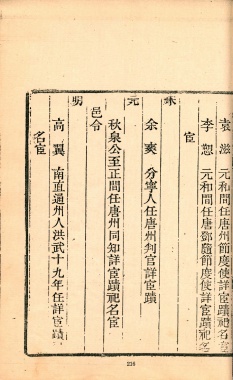 袁滋 元和間任唐節度使詳宦蹟祀名
李愬 元和間任唐鄧隨節度使詳宦蹟祀名
宦
宋
余爽 分寧人任唐州判官詳宦蹟
元
秋泉公至正間任唐州同知詳宦蹟祀名宦
邑令
明
高翼 南直通州人洪武十九年任詳宦蹟
名宦